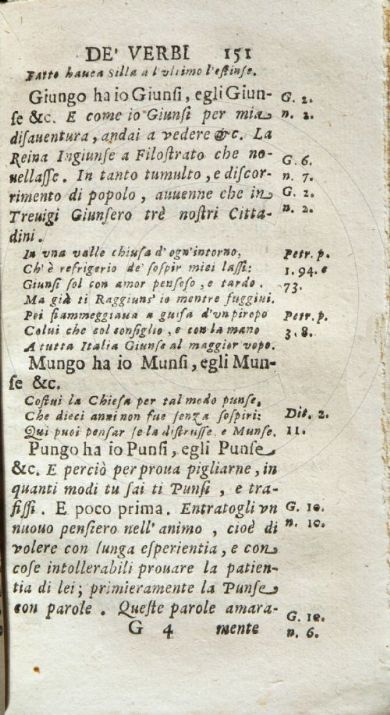 DE' VERBI 151
Fatto hauea Silla a l'vltimo l'estinse.
Giungo ha io Giunsi, egli Giun- G. 2.
se &c. E come io Giunsi per mia n. 2.
disauentura, andai a vedere &c. La
Reina Ingiunse a Filostrato che no- G. 6.
nellasse. In tanto tumulto, e discor- n. 7.
rimento di popolo, auuenne che in G. 2.
Treuigi Giunsero trè nostri Citta- n. 2.
dini.
In vna valle chiusa d'ogn'intorno, Petr. p.
Ch'è refrigerio de' sospir miei lassi; 1. 94. e
Giunsi sol con amor pensoso, e tardo. 73.
Ma già ti Raggiuns' io mentre fuggiui.
Poi fiammeggiaua a guisa d'vn piropo Petr. p.
Colui che col consiglio, e con la mano 3. 8.
A tutta Italia Giunse al maggior vopo.
Mungo ha io Munsi, egli Mun-
se &c.
Costui la Chiesa per tal modo punse,
Che dieci anni non fue senza sospiri: Dit. 2.
Qui puoi pensar se la distrusse, e Munse. 11.
Pungo ha io Punsi, egli Punse
&c. E perciò per proua pigliarne, in
quanti modi tu sai ti Punsi, e tra-
fissi. E poco prima. Entratogli vn G. 10.
nuouo pensiero nell'animo, cioè di n. 10.
volere con lunga esperientia, e con
cose intollerabili prouare la patien-
tia di lei; primieramente la Punse
con parole. Queste parole amara- G. 10.
G 4 mente n. 6.